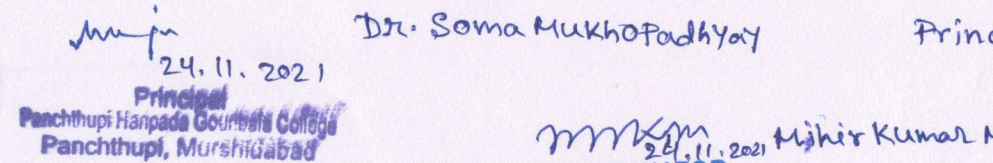 Dr. Soma Mukhopadhyay Princ
24.11.2021
Principal
Panchthupi Haripada Gouribala College
Panchthupi, Murshidabad
24.11.2021 Mihir Kumar M